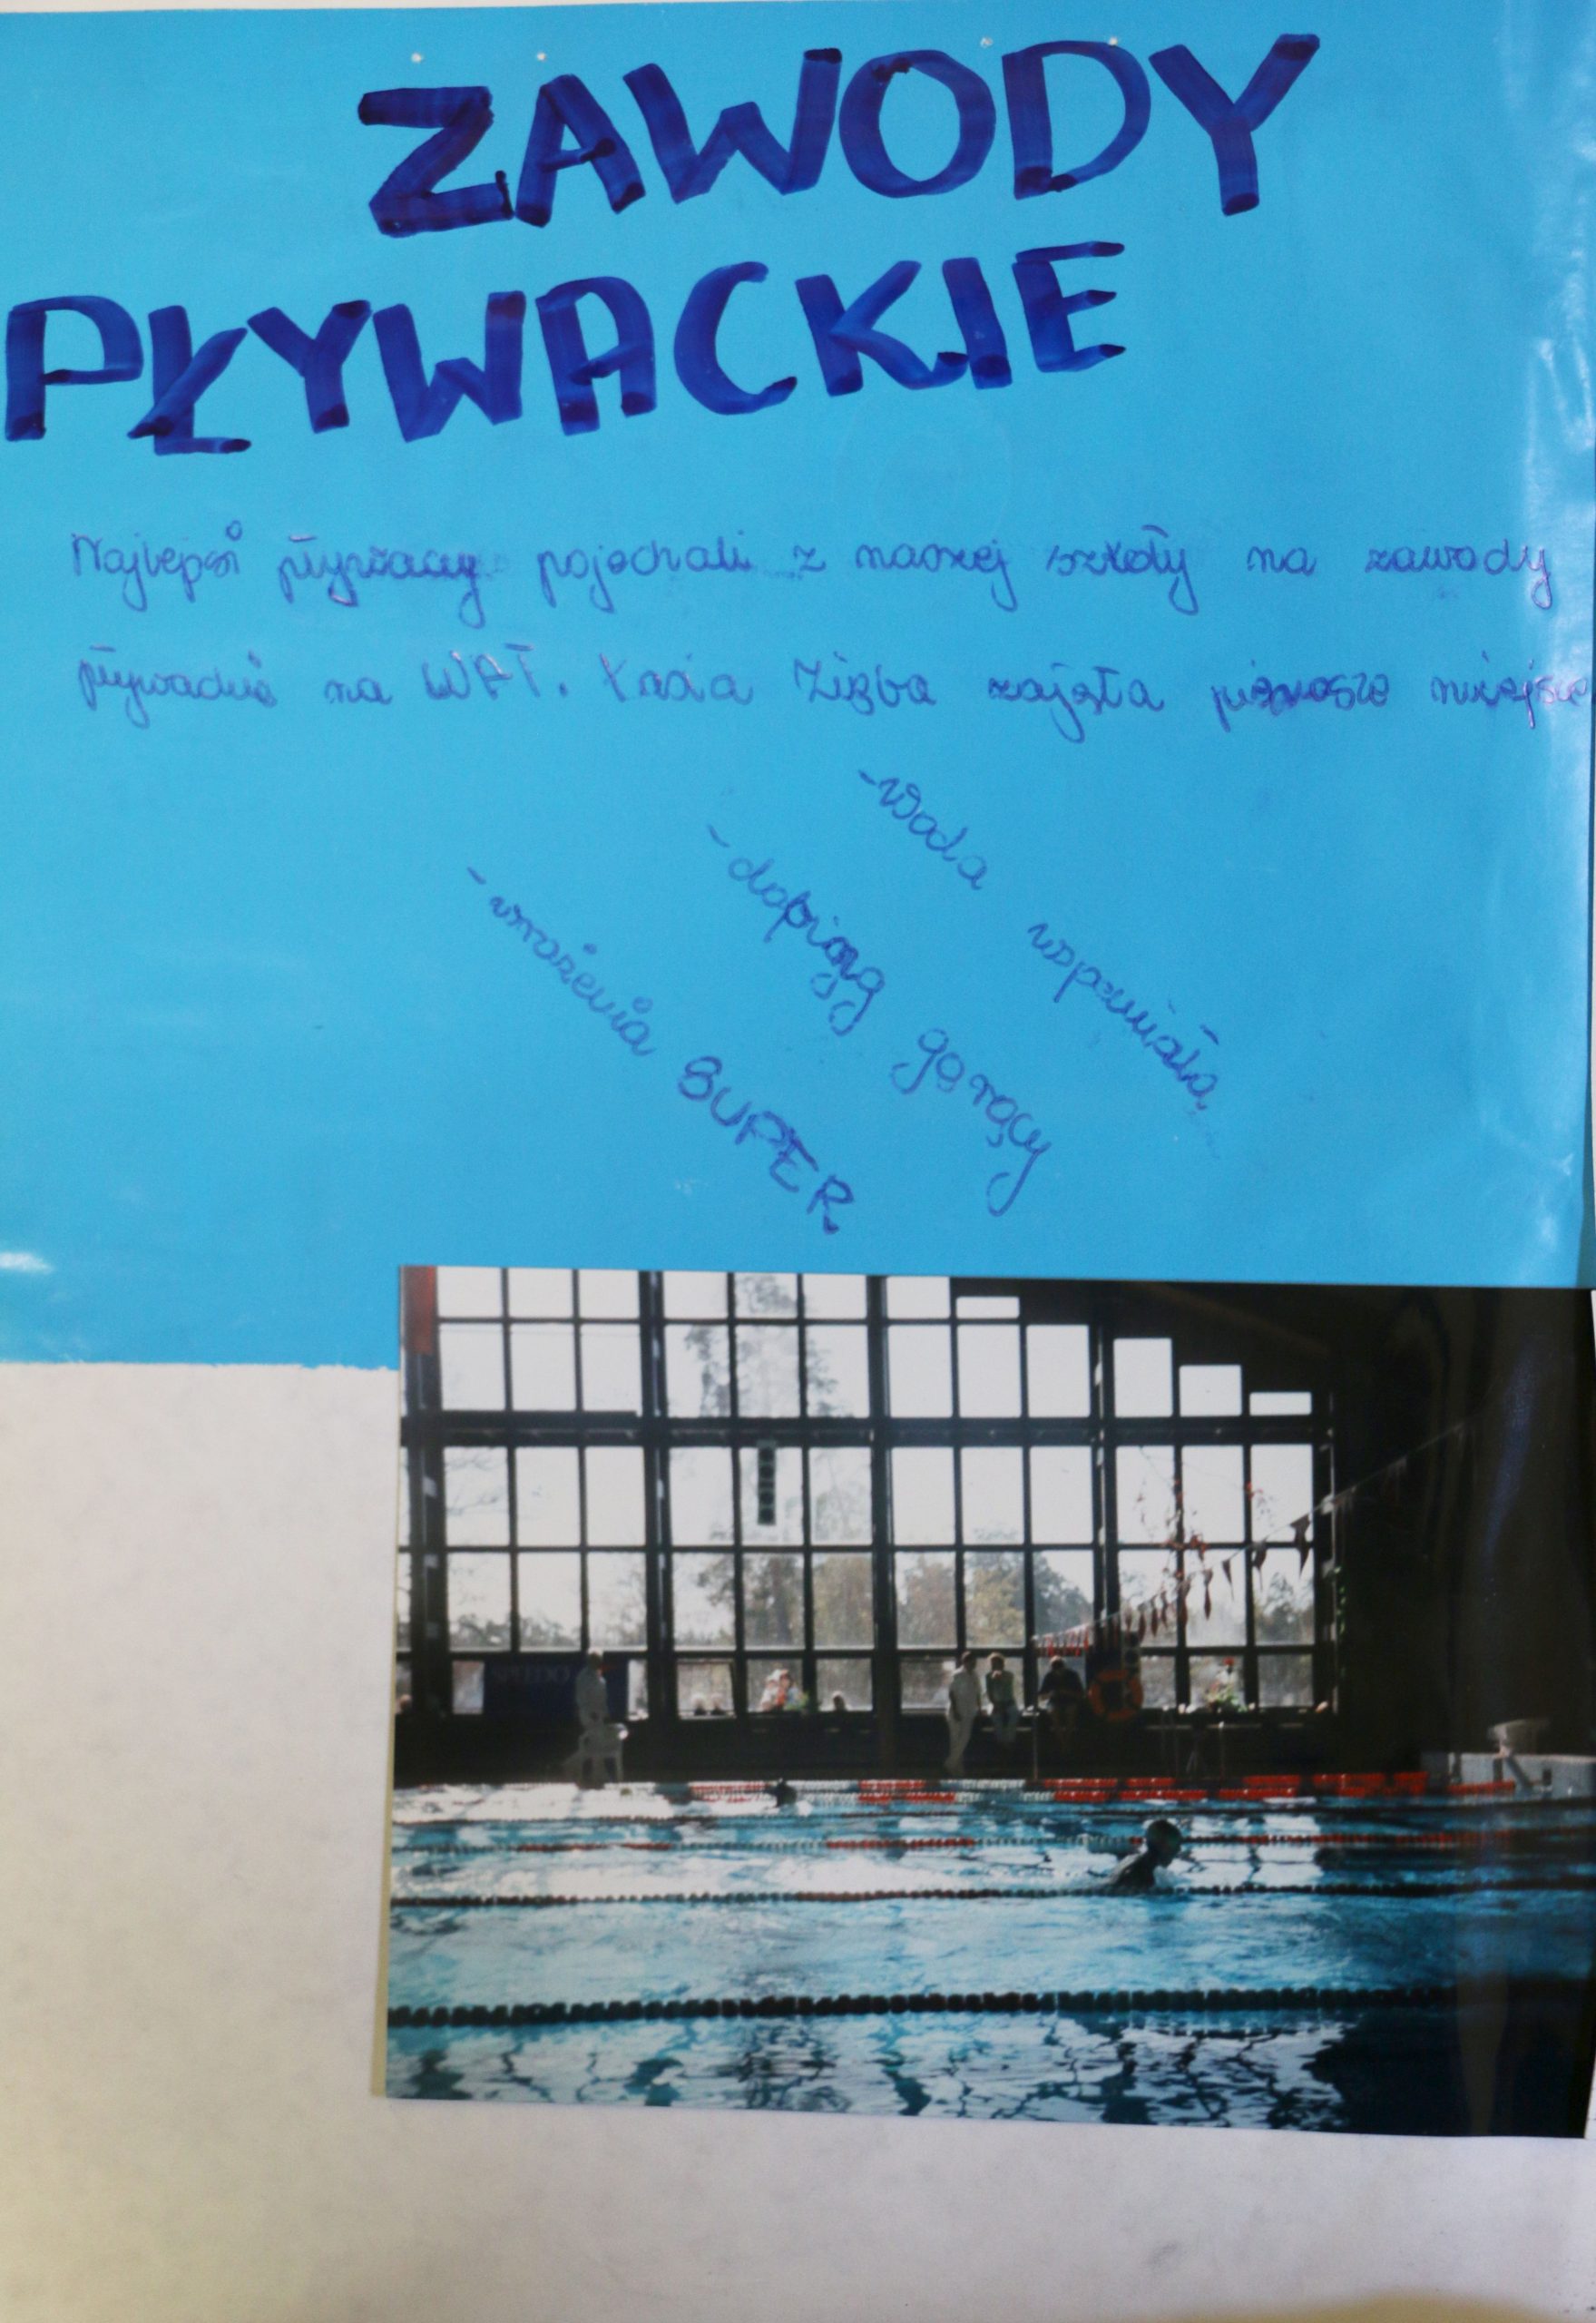 ZAWODY
PŁYWACKIE
Najlepsi pływacy pojechali z naszej szkoły na zawody
pływackie na WAT. Zięba zajęła pierwsze miejsce
-woda wspaniała
-doping gorący
-wrażenia SUPER